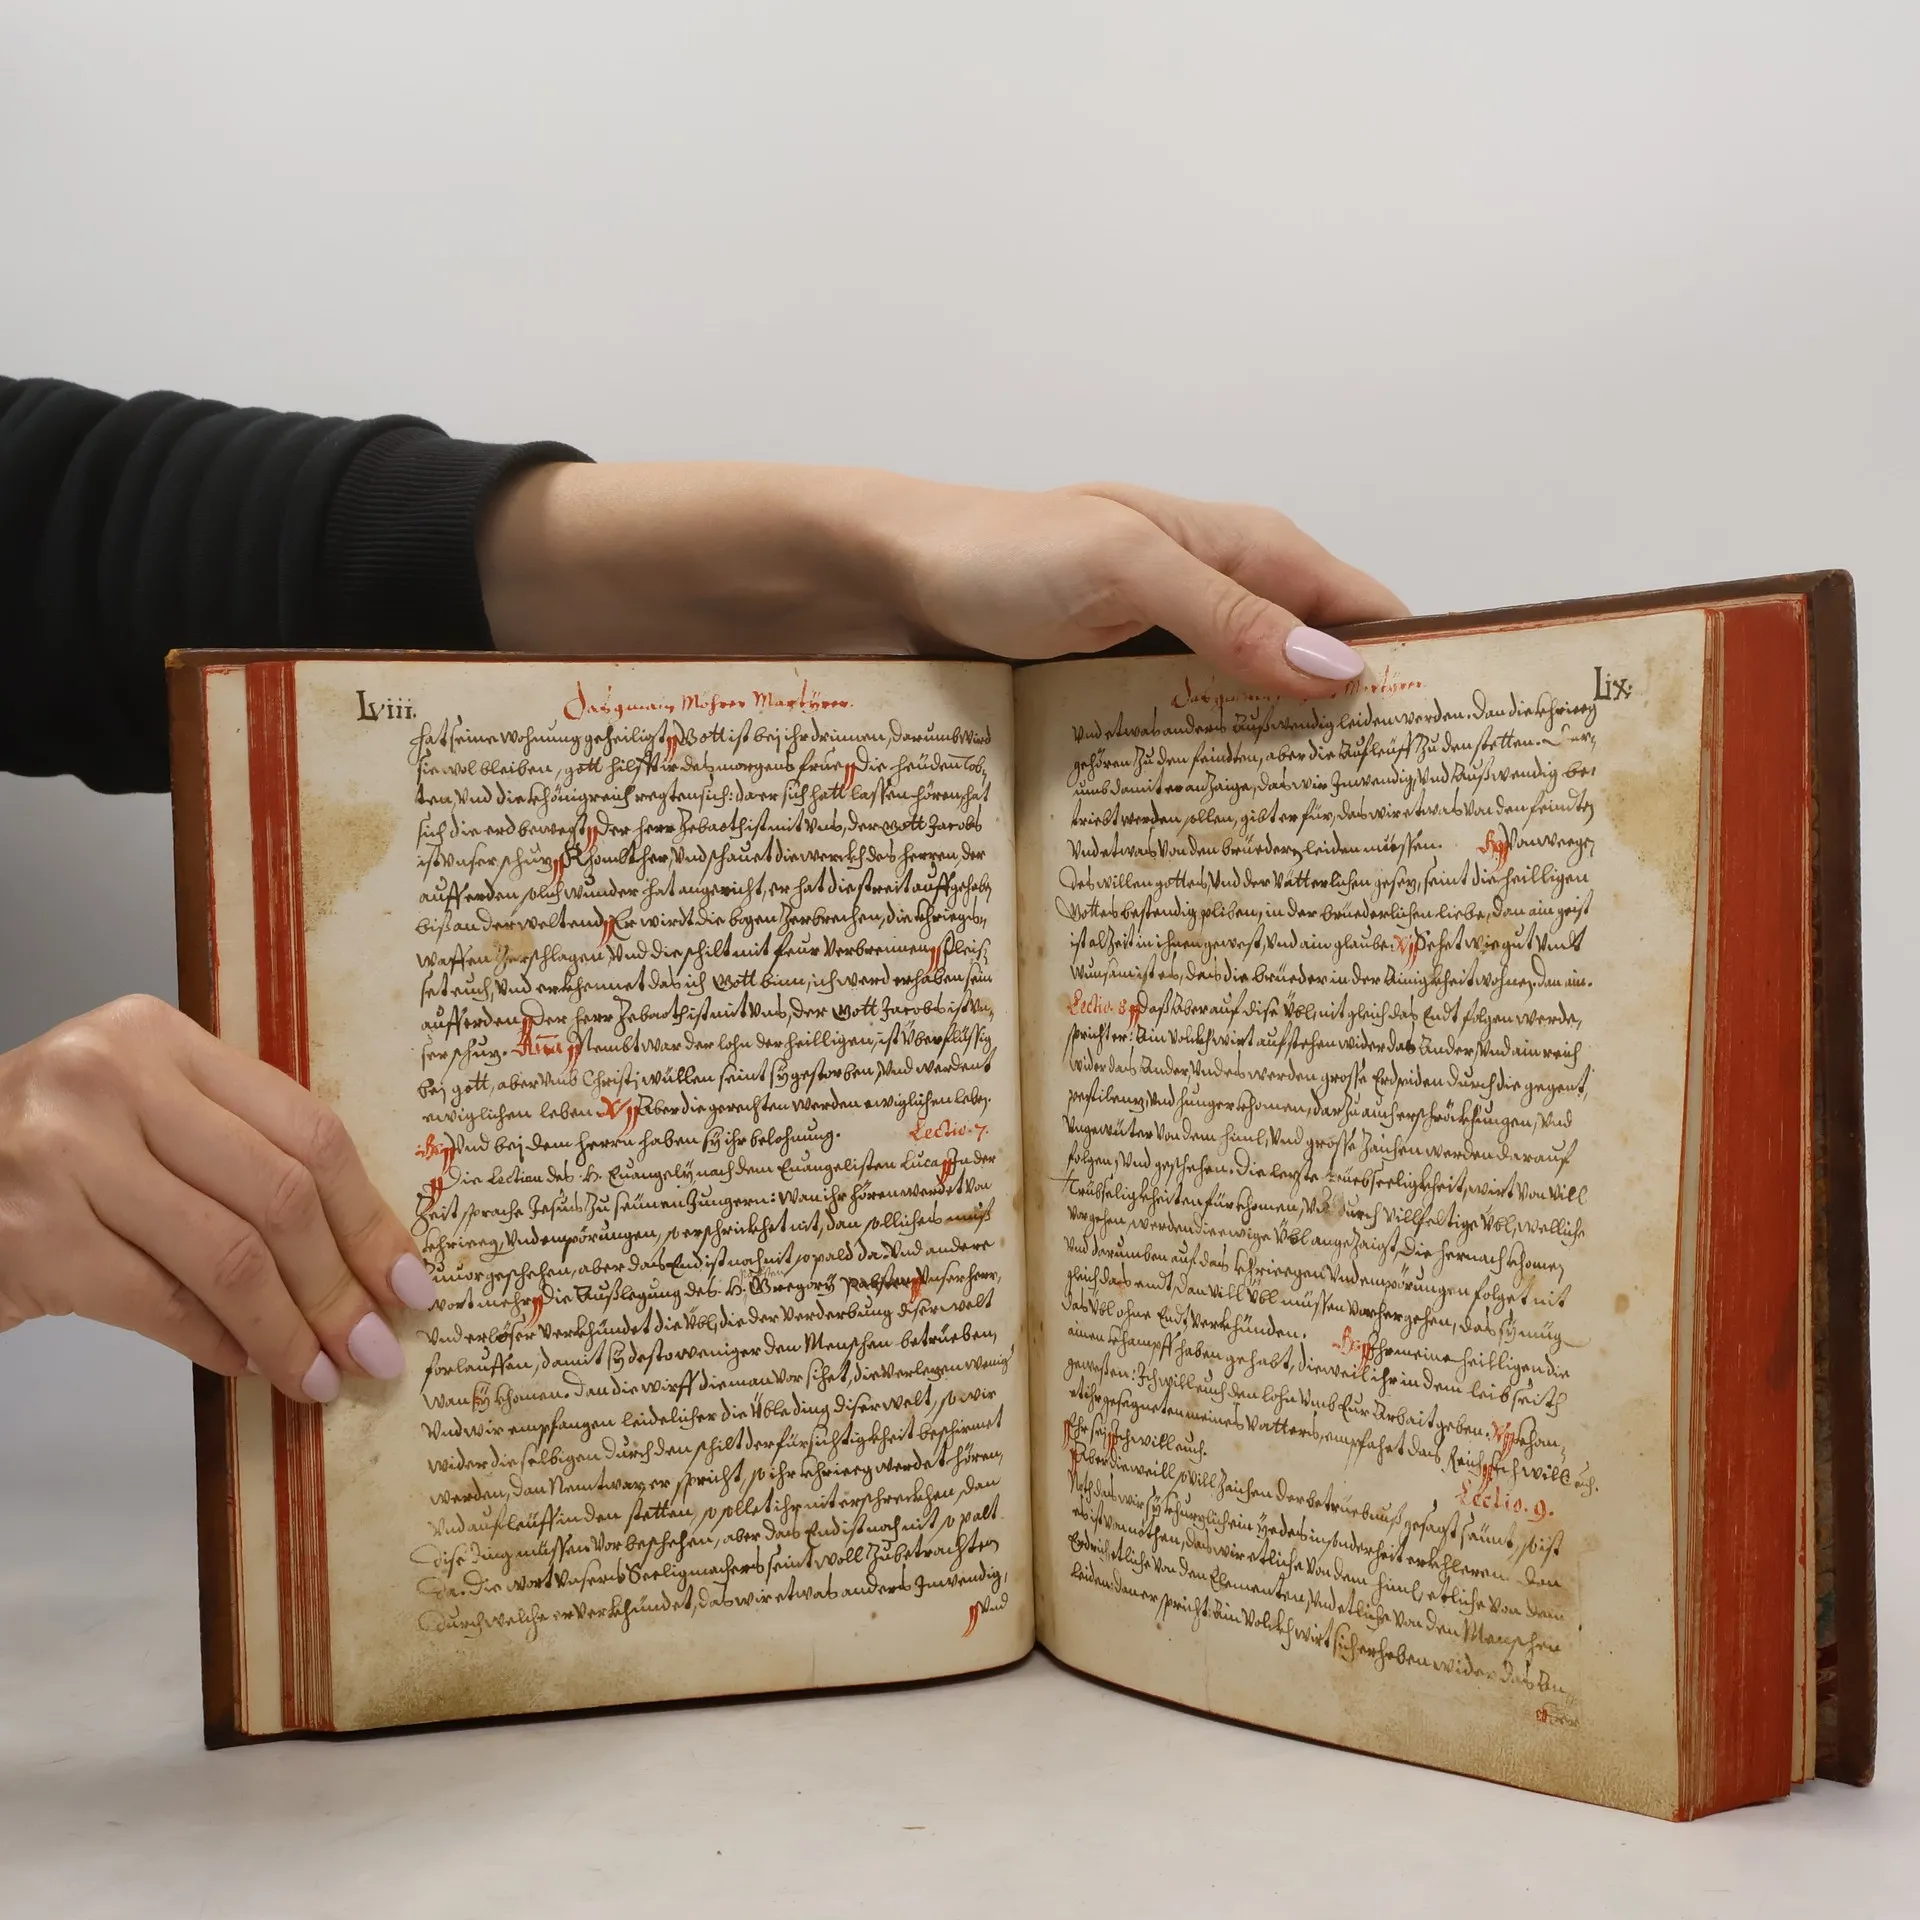 Lviii.
Das gmain Möhrer Martÿrer.
hat seine wohnung geheiligt, Gott ist beÿ ihr drinnen, darumb wird
sie wol bleiben, gott hilfft ir des morgens frue, Die heüden tob-
ten, Vnd die khönigreich regten sich: da er sich hatt lassen hören, hat
sich die erd bewegt, Der herr Zebaoth ist mit Vns, der Gott Jacobs
ist Vnser schuz, Khombt her, Vnd schauet die werckh des herren, der
auff erden solch wunder hat angericht, er hat die streit auffgehebt
biß an der welt end, Er wirdt die bogen Zerbrechen, die khriegs-
waffen Zerschlagen, Vnd die schilt mit feur Verbrennen, Pleis-
set euch, Vnd erkhennet das ich Gott binn, ich werd erhaben sein
auff erden, Der herr Zebaoth ist mit Vns, der Gott Jacobs ist Vn-
ser schuz. Nembt war der lohn der heilligen, ist Überflüssig
beÿ gott, aber Vmb Christi wüllen seint sÿ gestorben, Vnd werdent
ewiglichen leben. V Aber die gerechten werden ewiglichen leben.
Vnd beÿ dem herrn haben sÿ ihr belohnung. Lectio. 7.
Die Lection des H. Euangelÿ nach dem Euangelisten Lucas, In der
Zeit sprache Jesus Zu seinen Jungern: Wan ihr hören werdet Von
khrieeg, Vnd empörungen, so erschrickhet nit, dan sollichs muß
Zuuor geschehen, aber das End ist noch nit so pald da. Vnd andere
wort mehr, Die Außlegung des H. Gregorÿ Vnser herr,
Vnd erlöser Verkhündet die Übl, die der Verderbung diser welt
forlauffen, damit sÿ desto weniger den Menschen betrüeben,
wan sÿ khomen. Dan die wirff die man Vor sihet, die Verlezen wenig
Vnd wir empfangen leidelicher die Üble ding diser welt, so wir
wider die selbigen durch den schilt der fürsichtigkheit beschirmet
werden, dan Nemt war er spricht, so ihr khrieeg werdet hören,
Vnd aufleüff in den stetten, so sollet ihr nit erschreckhen, dan
dise ding müssen Vor beschehen, aber das End ist noch nit so palt
da. Die wort Vnsers Seeligmachers seint woll Zubetrachten
durch welche er Verkhündet, das wir etwas anders Inwendig,
Vnd
Lix.
Das gmain Martÿrer.
Vnd etwas anders Außwendig leiden werden. Dan die khrieeg
gehören Zu den feindten, aber die Aufleüff Zu den stetten. Dar-
umb damit er anZaige, das wir Inwendig, Vnd Außwendig be-
triebt werden sollen, gibt er für, das wir etwas Von den feindten
Vnd etwas Von den brüedern leiden müessen. Von weegen
des willen gottes, Vnd der Vätterlichen gesez, seint die heilligen
Gottes bestendig pliben, in der brüederlichen liebe, dan ain geist
ist alZeit in ihnen gewest, Vnd ain glaube. V Sehet wie gut Vndt
wunsam ist es, das die brüeder in der Ainigkheit wohnen. Dan ain.
Lectio. 8. Daß Aber auf dise Übl, nit gleich das Endt folgen werde,
spricht er: Ain Volckh wirt aufstehen wider das Ander, Vnd ain reich
wider das Ander, Vnd es werden grosse Erdpiden durch die gegent,
pestilenz, Vnd hunger khomen, darZu auch erschröckhungen, Vnd
Vngewüter Von dem himl, Vnd grosse Zaichen werden darauf
folgen, Vnd geschehen. Die lezste trüebseeligkheit, wirt Von Vill
trübseligkheiten fürkhomen, Vnd durch Villfeltige Übl, welliche
Vorgehen, werden die ewige Übl angeZaigt, Die hernach khomen
Vnd darumben auf das khrieegen Vnd empörungen folget nit
gleich das endt, dan Vill Übl müssen Vorhergehen, das sÿ müg-
das Übl ohne Endt Verkhünden. Ihr meine heilligen die
ainen khampff haben gehabt, dieweil ihr in dem leib seith
geweßen: Ich will euch den lohn Vmb Eur Arbait geben. V Khom-
et ihr gesegneten meines Vatters, empfahet das Reich, Ich will euch.
Ehr seÿ, Ich will euch. Lectio. 9.
Aber dieweill souill Zaichen der betrüebnuß gesagt seint, so ist
Noth das wir sÿ khurzlich ein yedes insonderheit erkhleren. Dan
es ist Von nöthen, das wir etliche Von dem himl, etliche Von dem
Erdrich, etliche Von den Elementen, Vnd etliche Von den Menschen
leiden: dan er spricht: Ain Volckh wirt sich erheben wider das An-